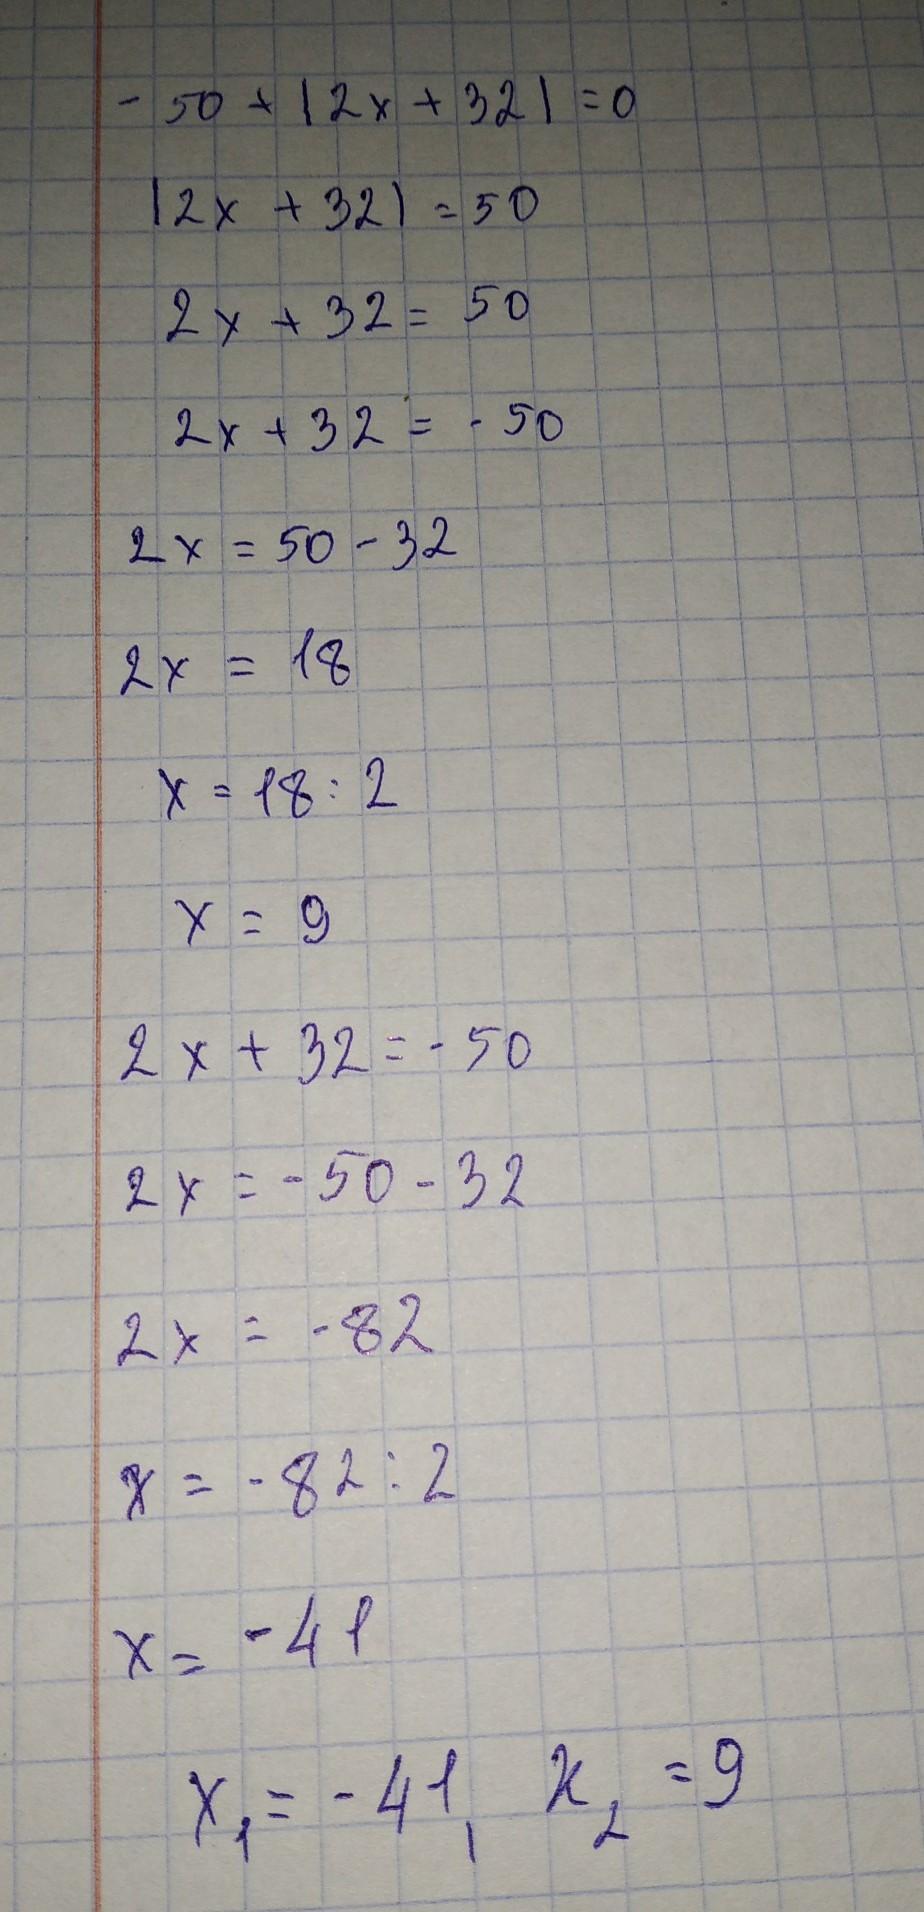 - 50 + |2x + 32| = 0
|2x + 32| = 50
2x + 32 = 50
2x + 32 = - 50
2x = 50 - 32
2x = 18
x = 18 : 2
x = 9
2x + 32 = - 50
2x = - 50 - 32
2x = - 82
x = - 82 : 2
x = - 41
x₁ = - 41, x₂ = 9